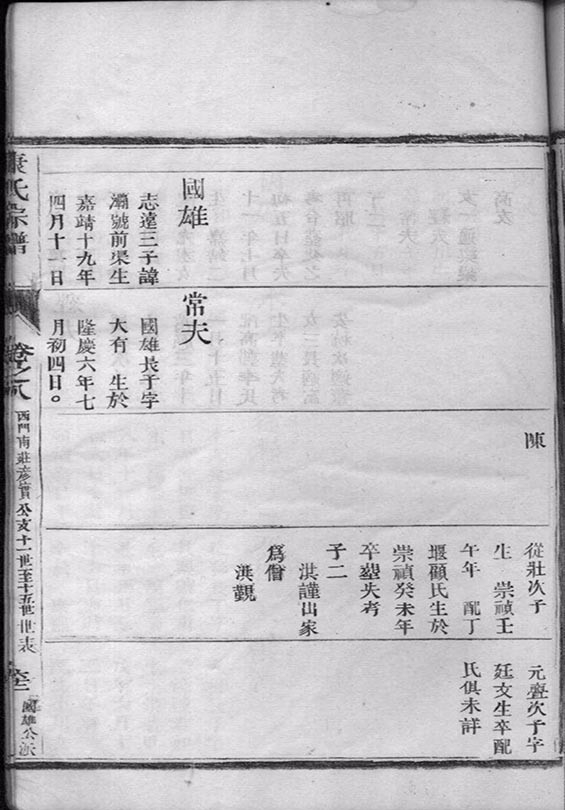 陳
從壯次子
生 崇禎壬
午年 配丁
堰顧氏生於
崇禎癸未年
卒塟失考
子二
洪謹出家
爲僧
洪觀
元臺次子字
廷文生卒配
氏俱未詳
國雄
志遠三子諱
灞號前渠生
嘉靖十九年
四月十一日
常夫
國雄長子字
大有 生於
隆慶六年七
月初四日。
康氏宗譜
卷之八
西門南莊彥賓公支十一世至十五世世表
國雄公派